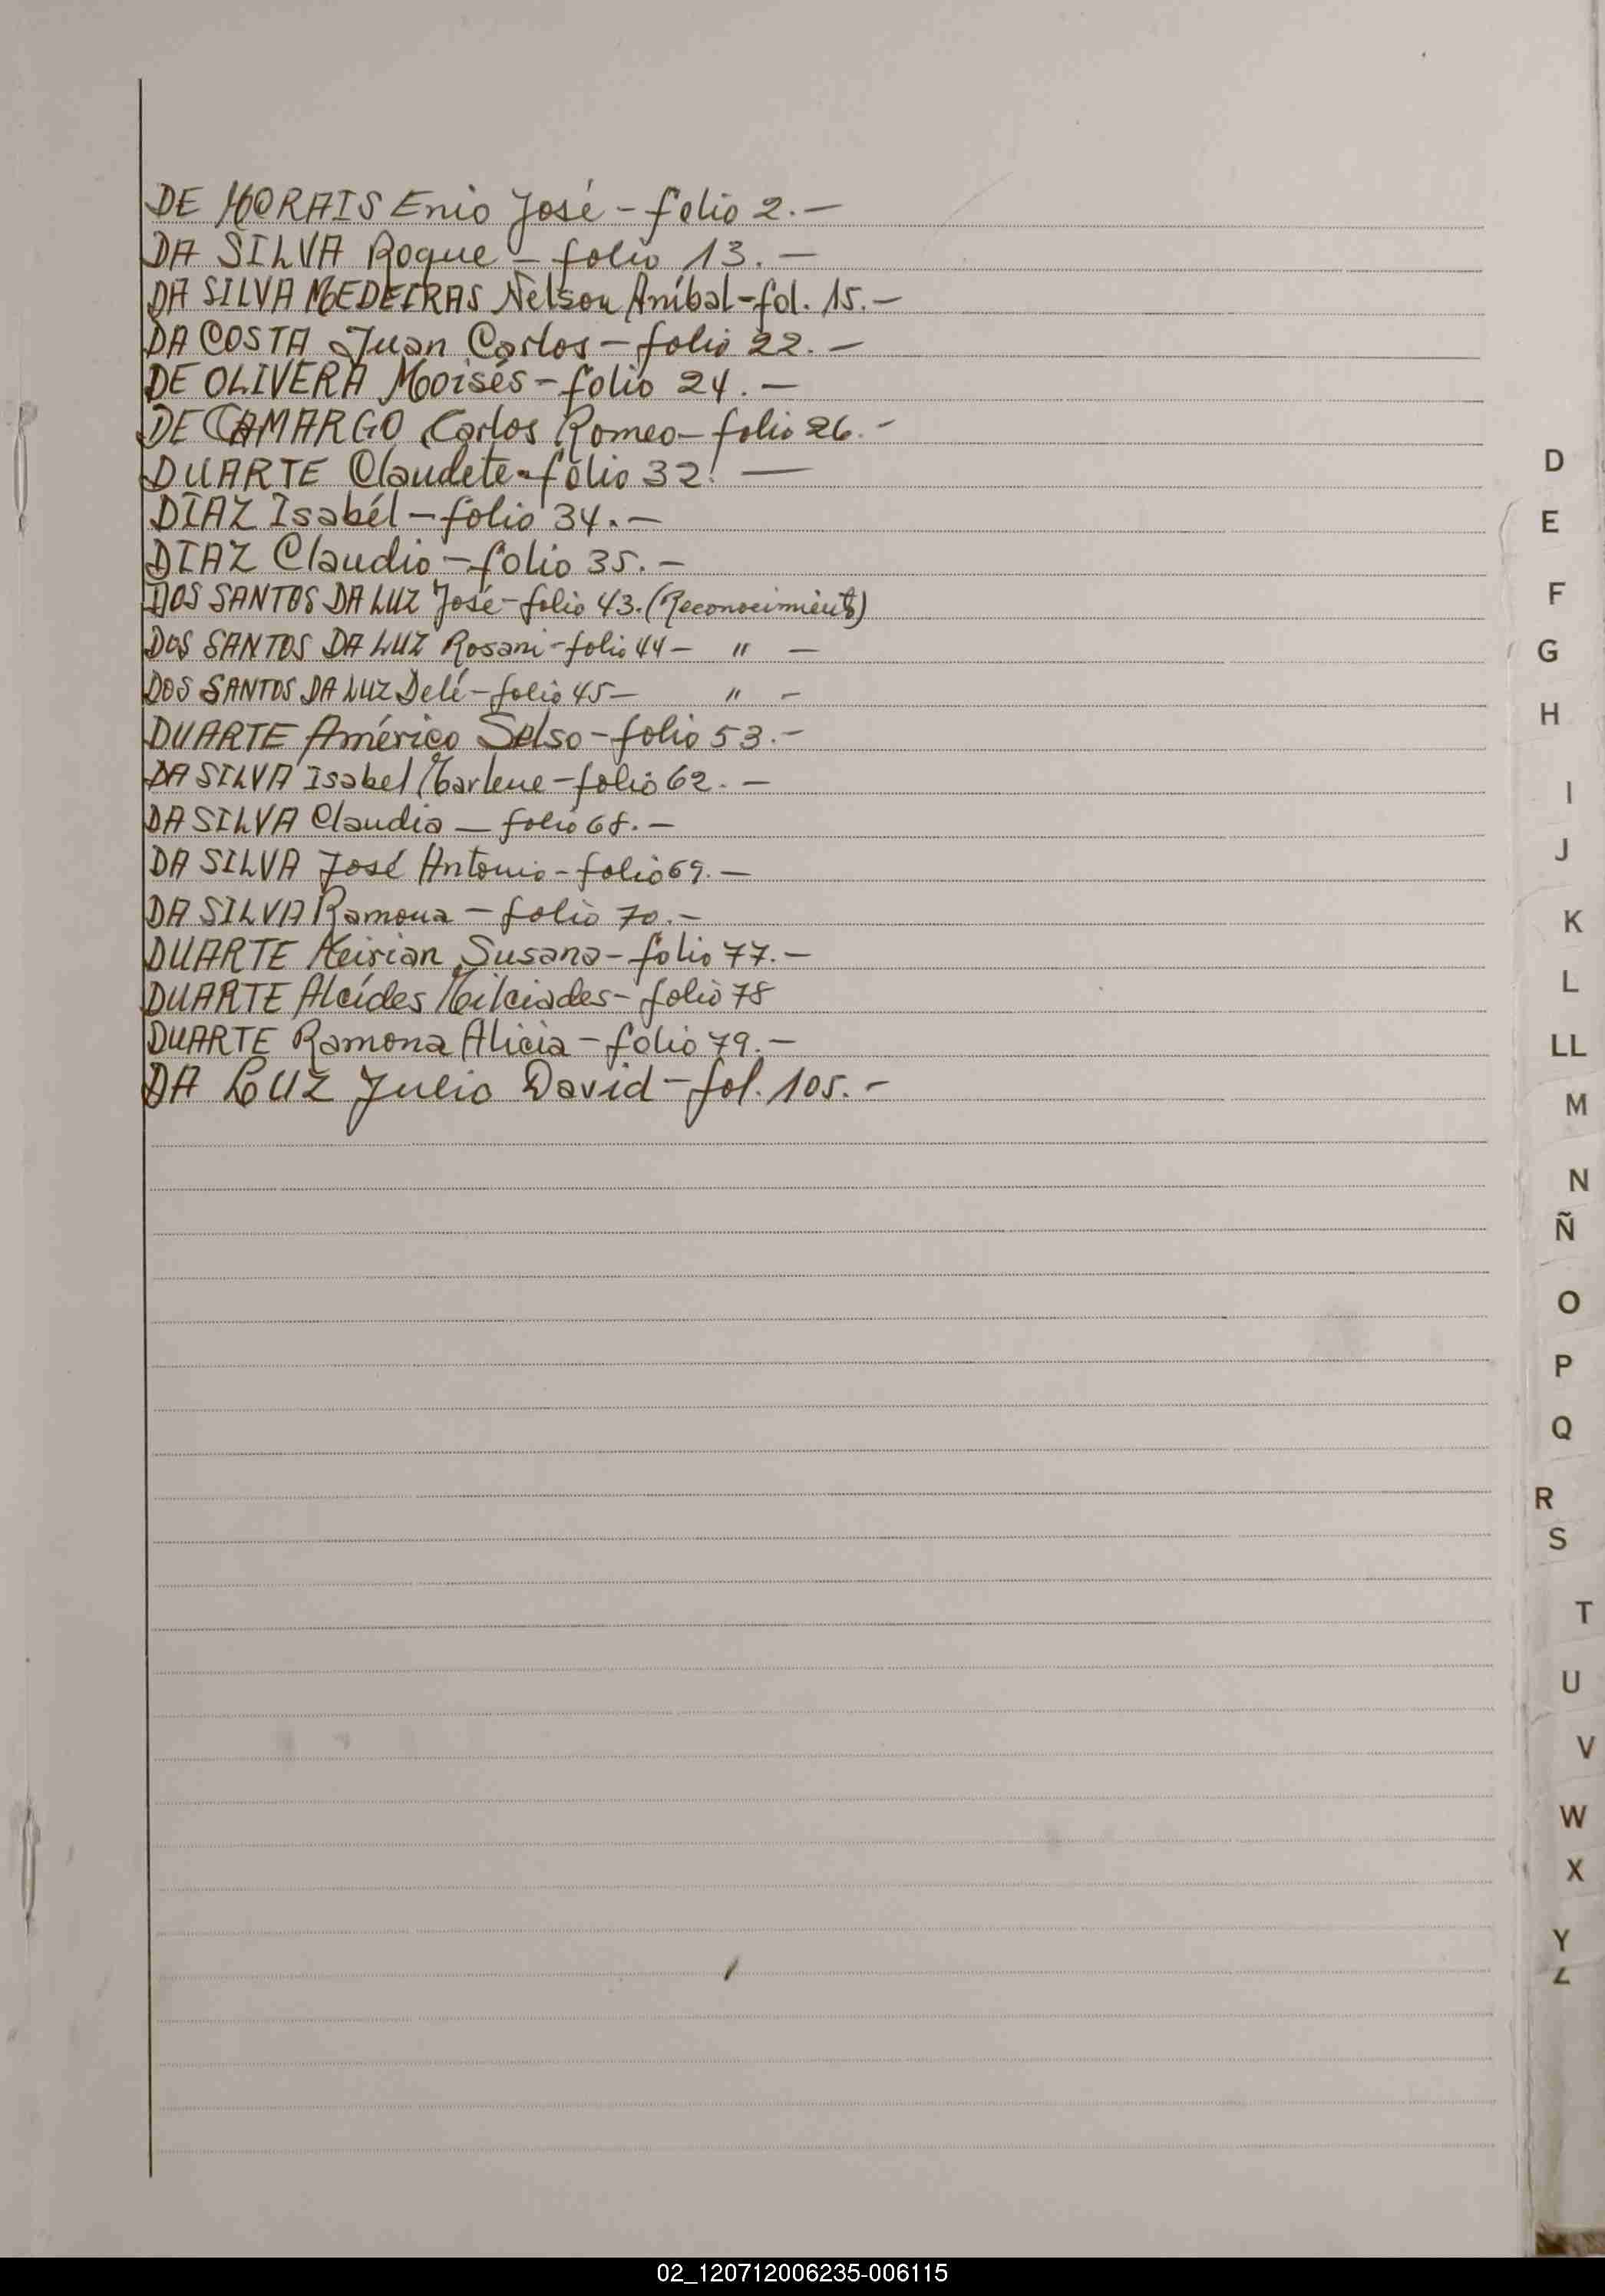 DE MORAIS Enio José - folio 2. —
DA SILVA Roque - folio 13. —
DA SILVA MEDEIRAS Nelson Aníbal - fol. 15. —
DA COSTA Juan Carlos - folio 22. —
DE OLIVERA Moisés - folio 24. —
DE CAMARGO Carlos Romeo - folio 26. -
DUARTE Claudete - folio 32. —
DIAZ Isabél - folio 34. —
DIAZ Claudio - folio 35. -
DOS SANTOS DA LUZ José - folio 43. (Reconocimiento)
DOS SANTOS DA LUZ Rosani - folio 44 - " —
DOS SANTOS DA LUZ Delé - folio 45 - " -
DUARTE Américo Selso - folio 53. -
DA SILVA Isabel Marlene - folio 62. —
DA SILVA Claudia - folio 68. —
DA SILVA José Antonio - folio 69. —
DA SILVA Ramona - folio 70. -
DUARTE Mirian Susana - folio 77. —
DUARTE Alcídes Milciades - folio 78
DUARTE Ramona Alicia - folio 79. —
DA LUZ Julio David - fol. 105. -
D
E
F
G
H
I
J
K
L
LL
M
N
Ñ
O
P
Q
R
S
T
U
V
W
X
Y
Z
02_120712006235-006115